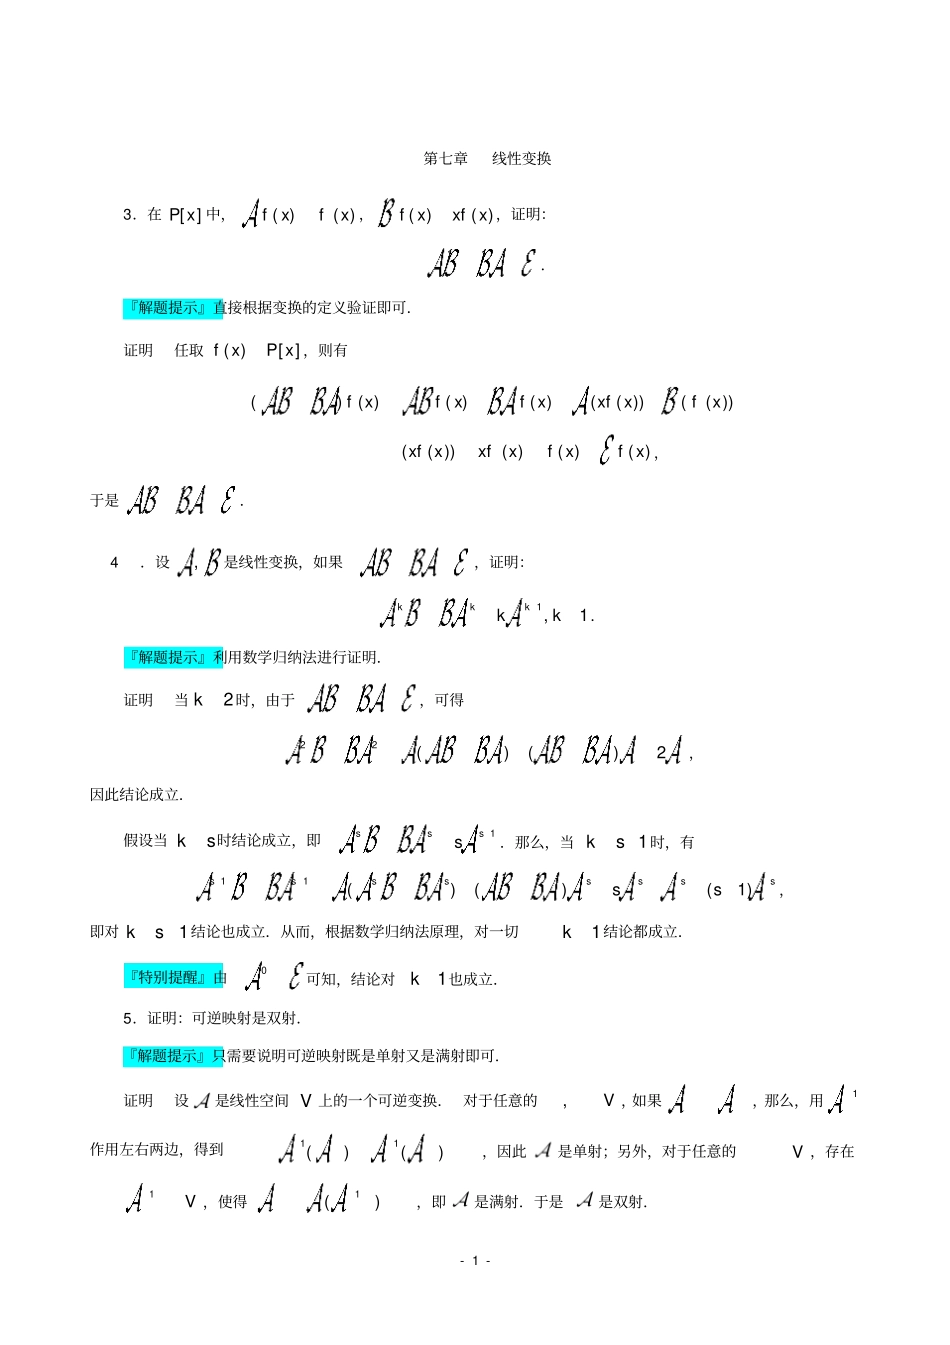 第七章 线性变换
3．在 P[x] 中，𝒜 f (x) f (x)，ℬ f (x) xf (x)，证明：
𝒜ℬ ℬ𝒜 ℰ．
『解题提示』直接根据变换的定义验证即可．
证明 任取 f (x) P[x]，则有
(𝒜ℬ ℬ𝒜) f (x) 𝒜ℬ f (x) ℬ𝒜 f (x) 𝒜(xf (x)) ℬ( f (x))
(xf (x)) xf (x) f (x) ℰ f (x)，
于是 𝒜ℬ ℬ𝒜 ℰ．
4 ．设 𝒜, ℬ 是线性变换，如果 𝒜ℬ ℬ𝒜 ℰ，证明：
𝒜^k ℬ ℬ𝒜^k k𝒜^{k 1}, k 1．
『解题提示』利用数学归纳法进行证明．
证明 当 k 2时，由于 𝒜ℬ ℬ𝒜 ℰ，可得
𝒜^2 ℬ ℬ𝒜^2 𝒜(𝒜ℬ ℬ𝒜) (𝒜ℬ ℬ𝒜)𝒜 2𝒜，
因此结论成立．
假设当 k s时结论成立，即 𝒜^s ℬ ℬ𝒜^s s𝒜^{s 1}．那么，当 k s 1时，有
𝒜^{s 1} ℬ ℬ𝒜^{s 1} 𝒜(𝒜^s ℬ ℬ𝒜^s) (𝒜ℬ ℬ𝒜)𝒜^s s𝒜^s 𝒜^s (s 1)𝒜^s，
即对 k s 1结论也成立．从而，根据数学归纳法原理，对一切 k 1结论都成立．
『特别提醒』由 𝒜^0 ℰ 可知，结论对 k 1也成立．
5．证明：可逆映射是双射．
『解题提示』只需要说明可逆映射既是单射又是满射即可．
证明 设 𝒜 是线性空间 V 上的一个可逆变换． 对于任意的 , V，如果 𝒜 𝒜 ，那么，用 𝒜^1
作用左右两边，得到 𝒜^1(𝒜 ) 𝒜^1(𝒜 ) ，因此 𝒜 是单射；另外，对于任意的 V，存在
𝒜^1 V，使得 𝒜 𝒜(𝒜^1 ) ，即 𝒜 是满射．于是 𝒜 是双射．
- 1 -